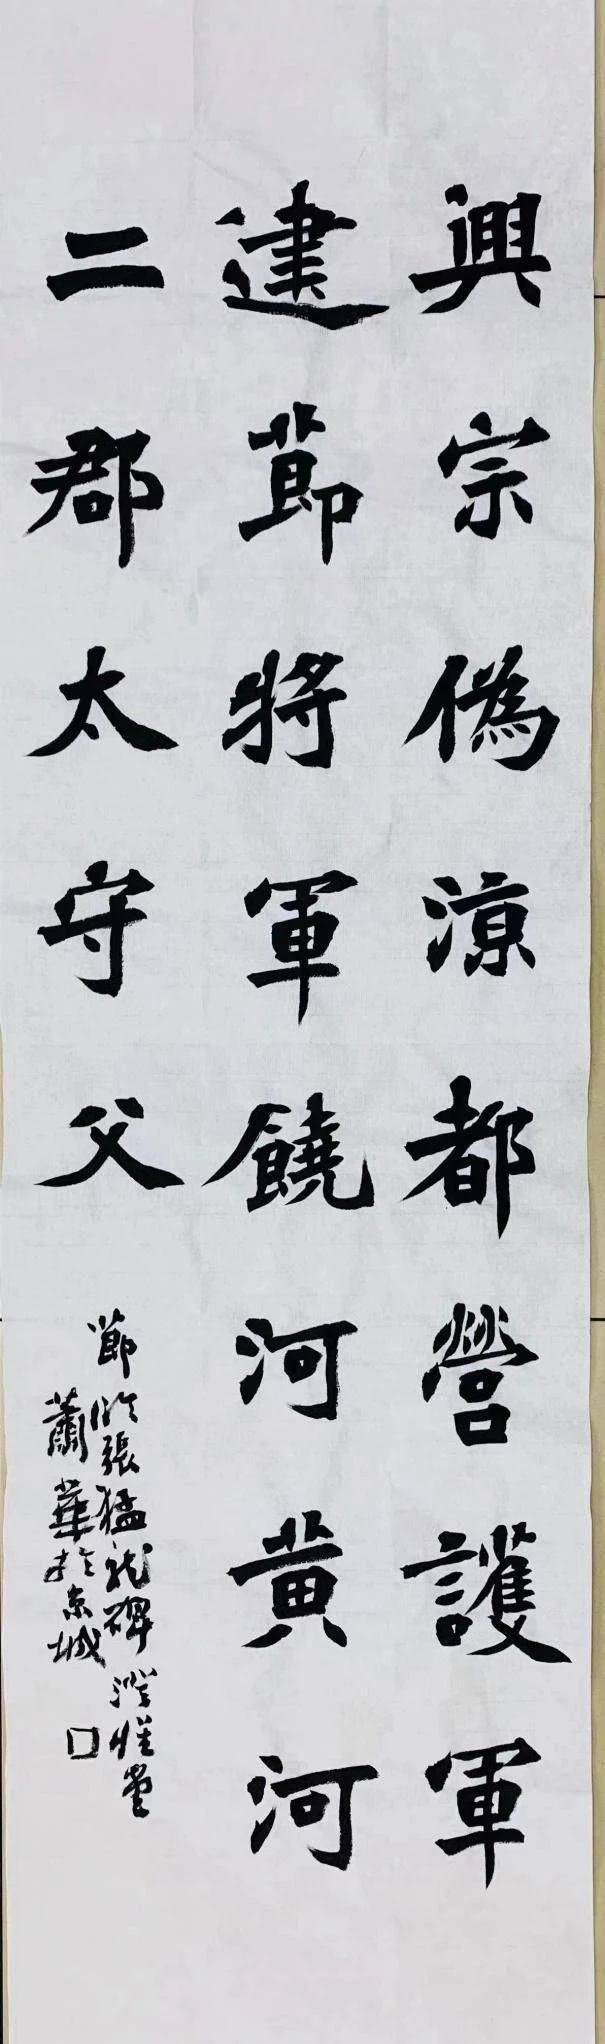 興宗偽涼都營護軍
建節將軍饒河黃河
二郡太守父
節臨張猛龍碑澄懷堂
蕭華於京城